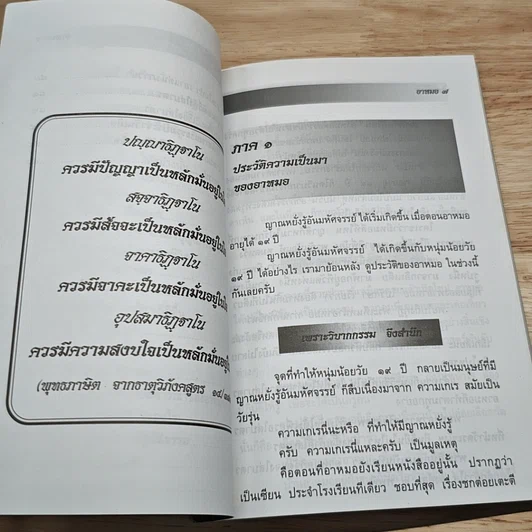 ปญฺญาธิฏฺฐาโน
ควรมีปัญญาเป็นหลักมั่นอยู่ใน
สจฺจาธิฏฺฐาโน
ควรมีสัจจะเป็นหลักมั่นอยู่ใน
จาคาธิฏฺฐาโน
ควรมีจาคะเป็นหลักมั่นอยู่ใน
อุปสมาธิฏฺฐาโน
ควรมีความสงบใจเป็นหลักมั่นอยู่
(พุทธภาษิต จากธาตุวิภังคสูตร ๑๔/
อาหมอ ๗
ภาค ๑
ประวัติความเป็นมา
ของอาหมอ
ญาณหยั่งรู้อันมหัศจรรย์ ได้เริ่มเกิดขึ้น เมื่อตอนอาหมอ
อายุได้ ๑๙ ปี
ญาณหยั่งรู้อันมหัศจรรย์ ได้เกิดขึ้นกับหนุ่มน้อยวัย
๑๙ ปี ได้อย่างไร เรามาย้อนหลัง ดูประวัติของอาหมอ ในช่วงนี้
กันเลยครับ
เพราะวิบากกรรม จึงสำนึก
จุดที่ทำให้หนุ่มน้อยวัย ๑๙ ปี กลายเป็นมนุษย์ที่มี
ญาณหยั่งรู้อันมหัศจรรย์ ก็สืบเนื่องมาจาก ความเกเร สมัยเป็น
วัยรุ่น
ความเกเรนี่นะหรือ ที่ทำให้มีญาณหยั่งรู้
ครับ ความเกเรนี่แหละครับ เป็นมูลเหตุ
คือตอนที่อาหมอยังเรียนหนังสืออยู่นั้น ปรากฏว่า
เป็นเซียน ประจำโรงเรียนทีเดียว ชอบที่สุด เรื่องชกต่อยเตะตี